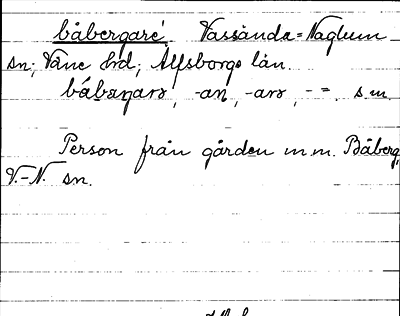 båbergare Vassända-Naglum
sn; Väne hrd; Älfsborgs län
båbærgarə, -an, -arə, - =. s.m.
Person från gården m.m. Båberg,
V.-N. sn.